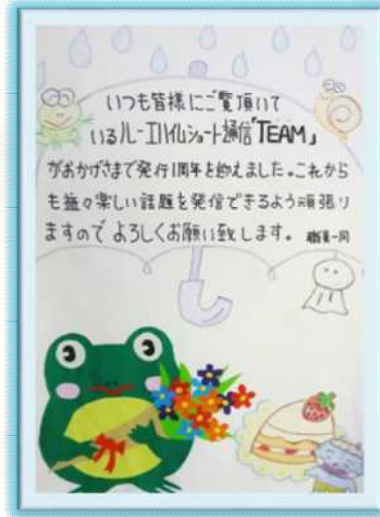 いつも皆様にご覧頂いて
いるルーエハイムショート通信「TEAM」
がおかげさまで発行1周年を迎えました。これから
も益々楽しい話題を発信できるよう頑張り
ますので よろしくお願い致します。 職員一同